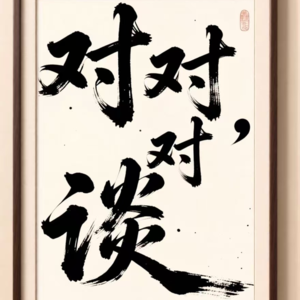 对对，
对
谈